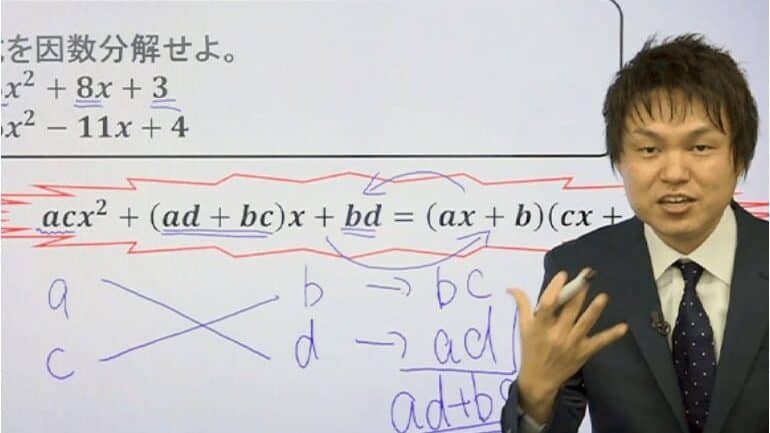 を因数分解せよ。
x² + 8x + 3
x² − 11x + 4
acx² + (ad + bc)x + bd = (ax + b)(cx +
a b → bc
c d → ad
ad+b